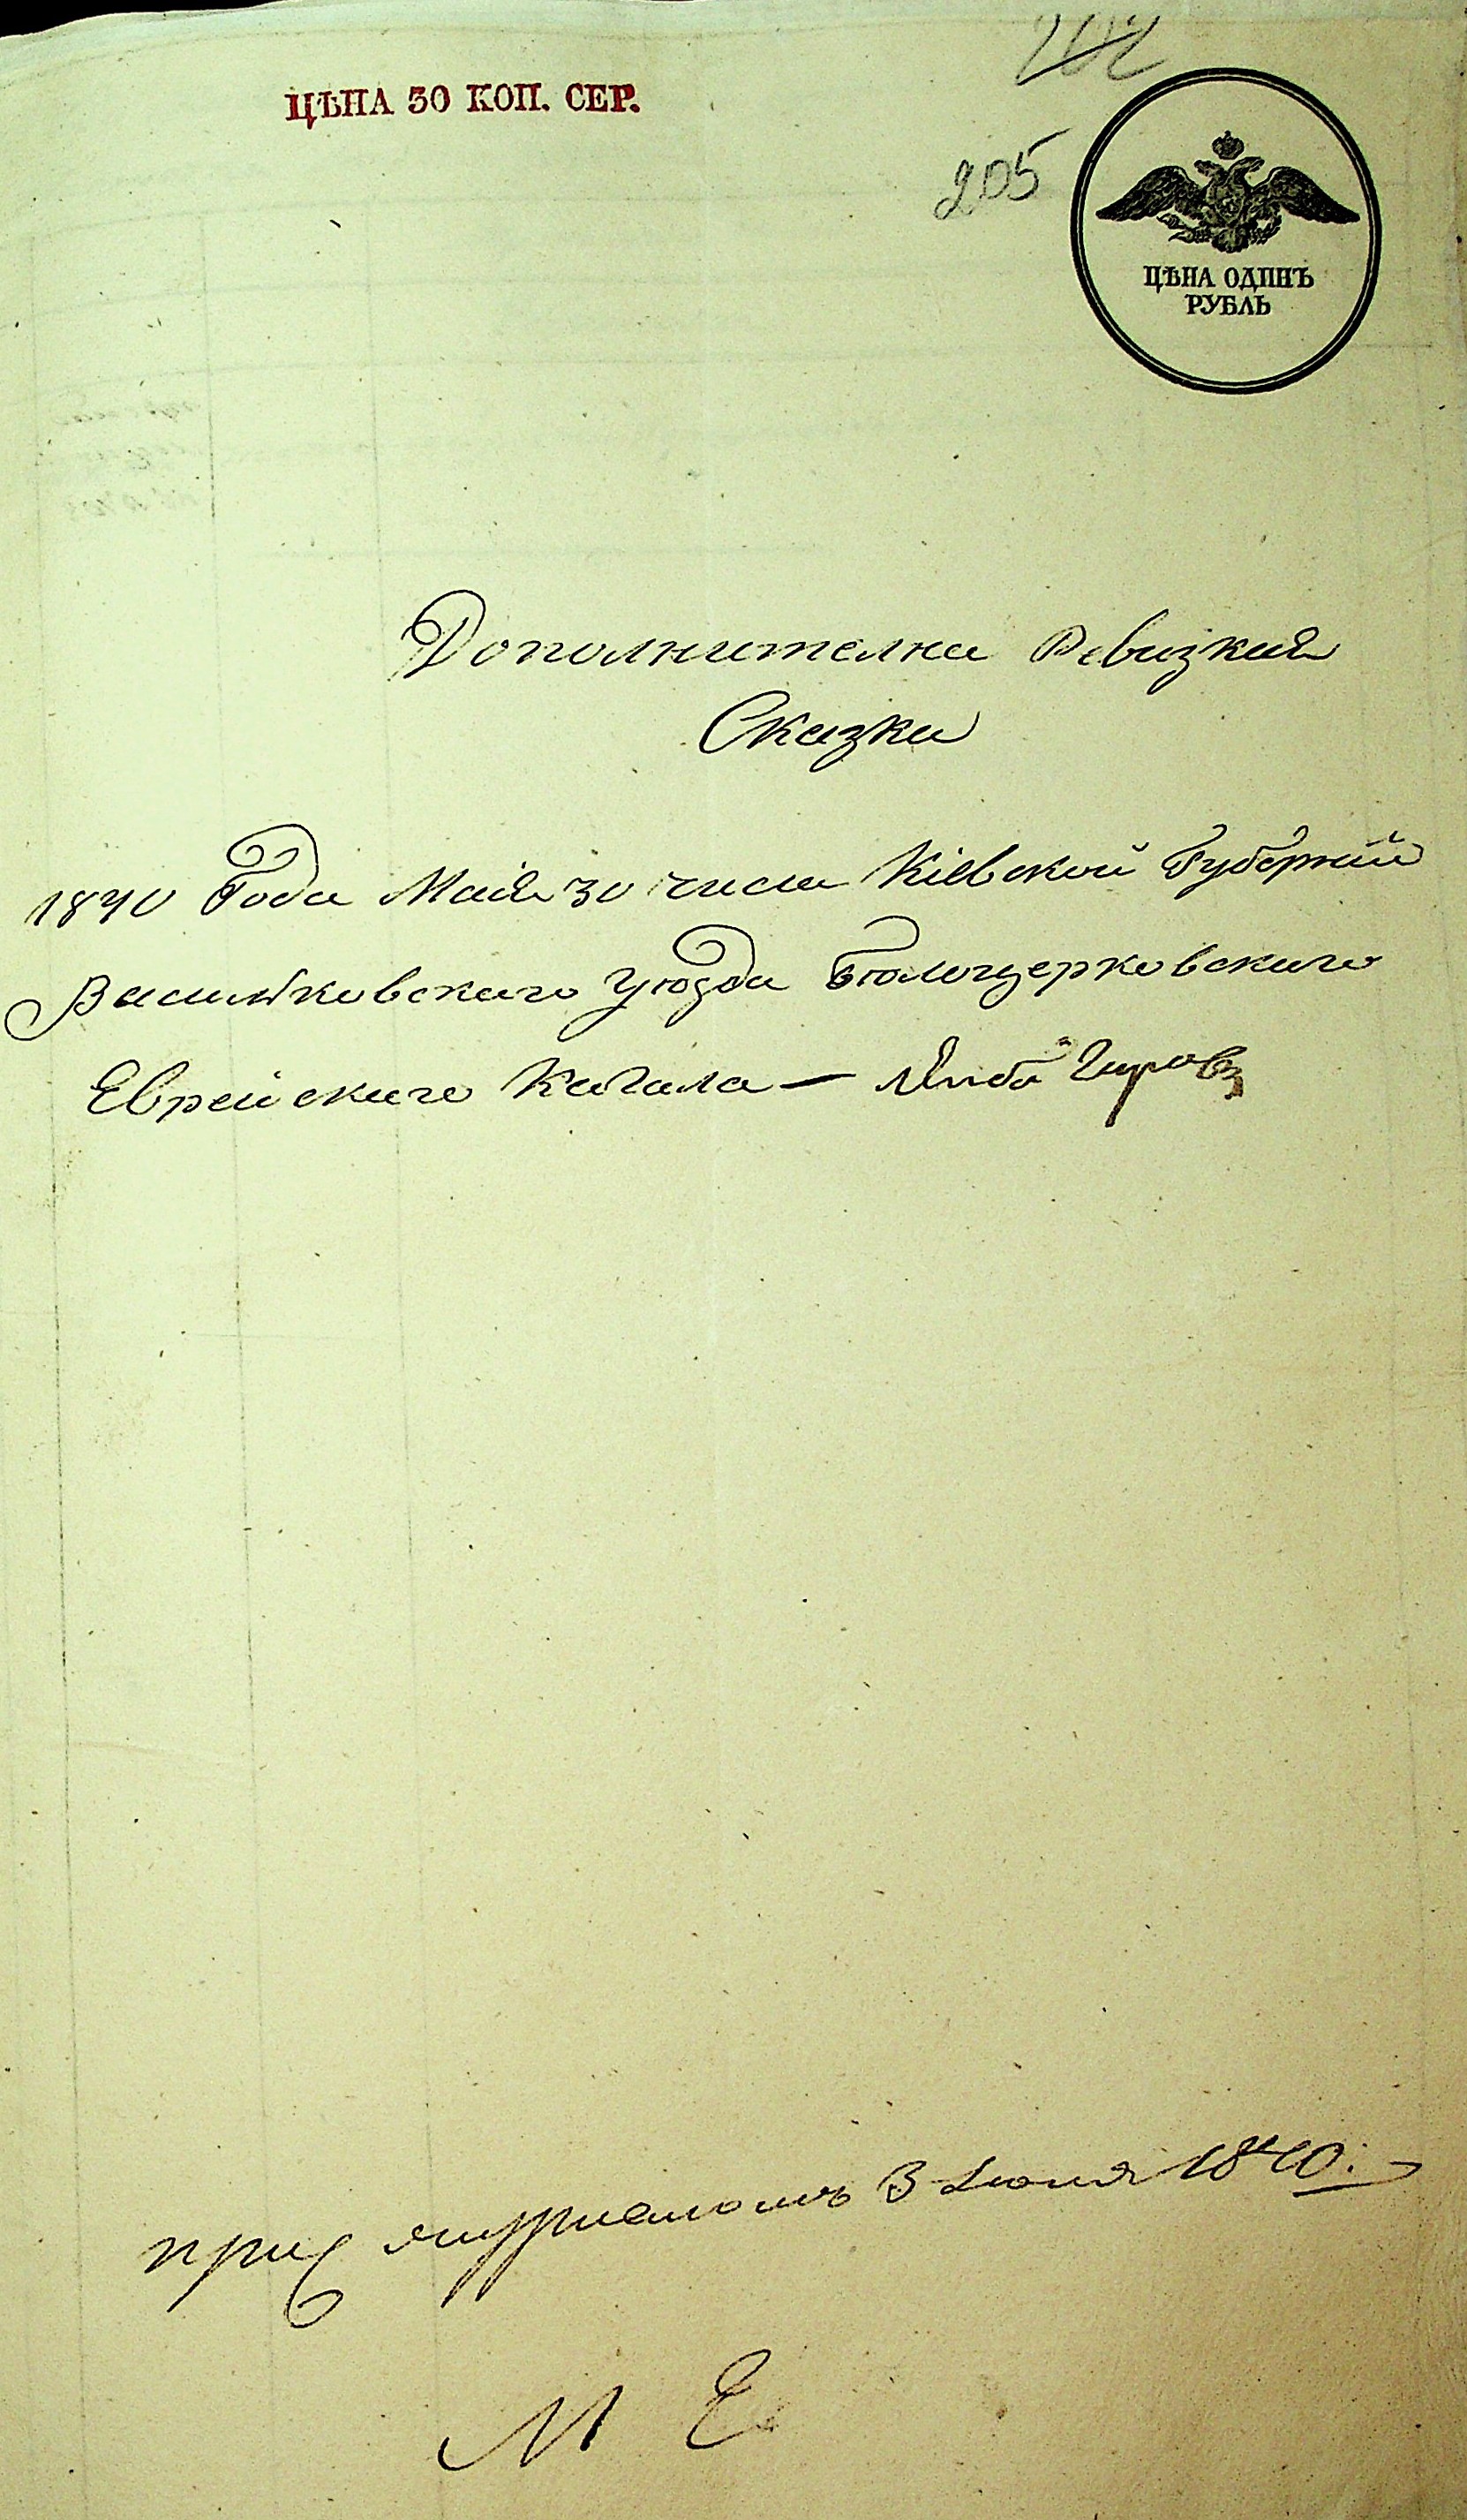 202
ЦѢНА 30 КОП. СЕР.
205
ЦѢНА ОДИНЪ
РУБЛЬ
Дополнителна Ревизкая
Сказка
1840 Года Маія 30 числа Кіевской Губерніи
Василковского Уюзда Бюлоцерковского
Еврейского Кагала —
3 Іюня 1840.
М Е